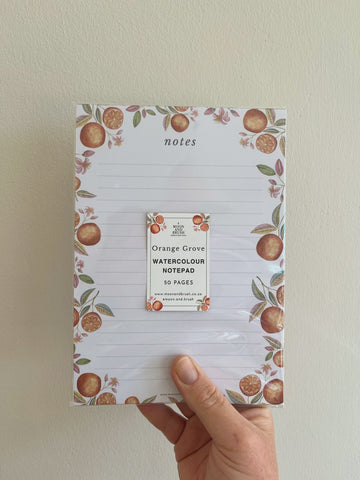 notes
MOON
AND
BRUSH
Orange Grove
WATERCOLOUR
NOTEPAD
50 PAGES
www.moonandbrush.co.za
@moon.and.brush